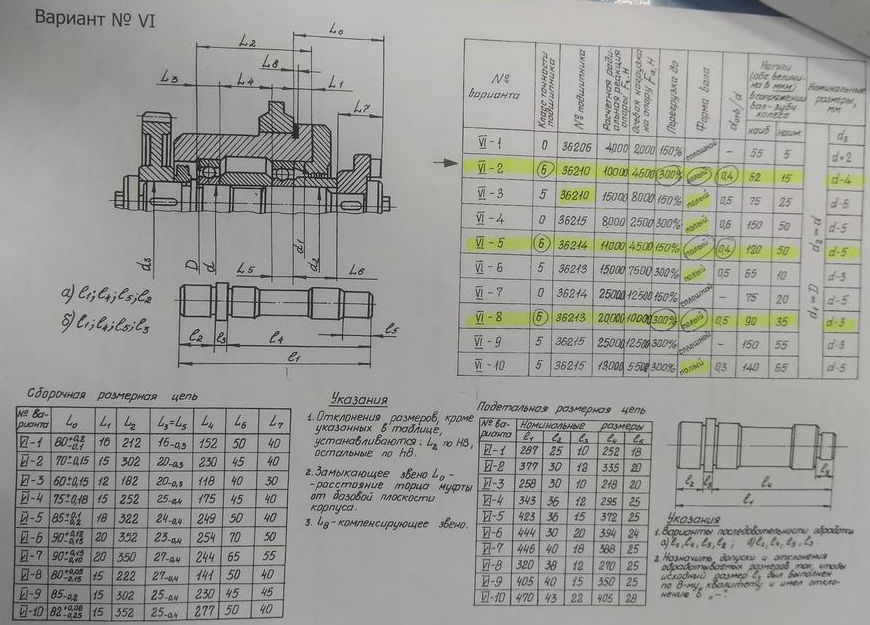 Вариант № VI
L₀
L₂
L₈
L₃
L₄
L₁
L₇
d₃
D
d
L₅
d₁
d₂
L₆
а) l₁; l₄; l₅; l₂
б) l₁; l₄; l₅; l₃
l₂
l₃
l₄
l₅
l₁
№ варианта
Класс точности подшипника
№ подшипника
Расчетная радиальная реакция опоры Fr, Н
Осевая нагрузка на опору Fa, Н
Перегрузка до
Форма вала
dотв/d
Натяги (абс величина в мкм) в сопряжении вал-зубч. колеса
наиб. наим.
Номинальные размеры, мм
d₃
VI-1 0 36206 4000 2000 150% сплошной – 55 5 d+2
VI-2 6 36210 10000 4600 300% полый 0,4 62 15 d-4
VI-3 5 36210 15000 8000 150% полый 0,5 75 25 d-6
VI-4 0 36215 8000 2500 300% полый 0,6 150 50 d-5
VI-5 6 36214 11000 4500 150% полый 0,4 120 50 d-5
VI-6 5 36213 15000 7500 300% полый 0,5 65 10 d-3
VI-7 0 36214 25000 12500 150% сплошной – 75 20 d-5
VI-8 6 36213 20000 10000 300% полый 0,5 90 35 d-3
VI-9 5 36215 25000 12500 300% сплошной – 150 55 d-3
VI-10 5 36215 13000 5500 300% полый 0,3 140 65 d-5
d₂ = d
d₁ = D
Сборочная размерная цепь
№ варианта L₀ L₁ L₂ L₃=L₅ L₄ L₆ L₇
VI-1 80+0,2 -0,1 16 212 16-0,3 152 50 40
VI-2 70-0,15 15 302 20-0,3 230 45 40
VI-3 60±0,15 12 182 20-0,3 118 40 30
VI-4 75±0,18 15 252 25-0,4 175 45 40
VI-5 85+0,1 -0,2 18 322 24-0,4 249 50 40
VI-6 90+0,12 -0,15 20 352 23-0,4 254 70 50
VI-7 90+0,15 -0,10 20 350 27-0,4 244 65 55
VI-8 80+0,05 -0,15 15 222 27-0,4 141 50 40
VI-9 85-0,2 15 302 25-0,4 230 45 45
VI-10 82+0,08 -0,25 15 352 25-0,4 277 50 40
Указания
1. Отклонения размеров, кроме
указанных в таблице,
устанавливаются: L₂ по H9,
остальные по h9.
2. Замыкающее звено L₀ –
-расстояние торца муфты
от базовой плоскости
корпуса.
3. L₈-компенсирующее звено.
Подетальная размерная цепь
№ варианта Номинальные размеры
l₁ l₂ l₃ l₄ l₅
VI-1 287 25 10 252 18
VI-2 377 30 12 335 20
VI-3 258 30 10 218 20
VI-4 343 36 12 295 25
VI-5 423 36 15 372 25
VI-6 444 30 20 394 24
VI-7 446 40 18 388 25
VI-8 320 38 12 270 25
VI-9 405 40 15 350 25
VI-10 470 43 22 405 28
l₂
l₃
l₄
l₅
l₁
Указания
1. Варианты последовательности обработки
а) l₁, l₄, l₅, l₂; б) l₁, l₄, l₅, l₃
2. Назначить допуски и отклонения
обрабатываемых размеров так, чтобы
исходный размер l₃ был выполнен
по 8-му квалитету и имел откло-
нение в „-".